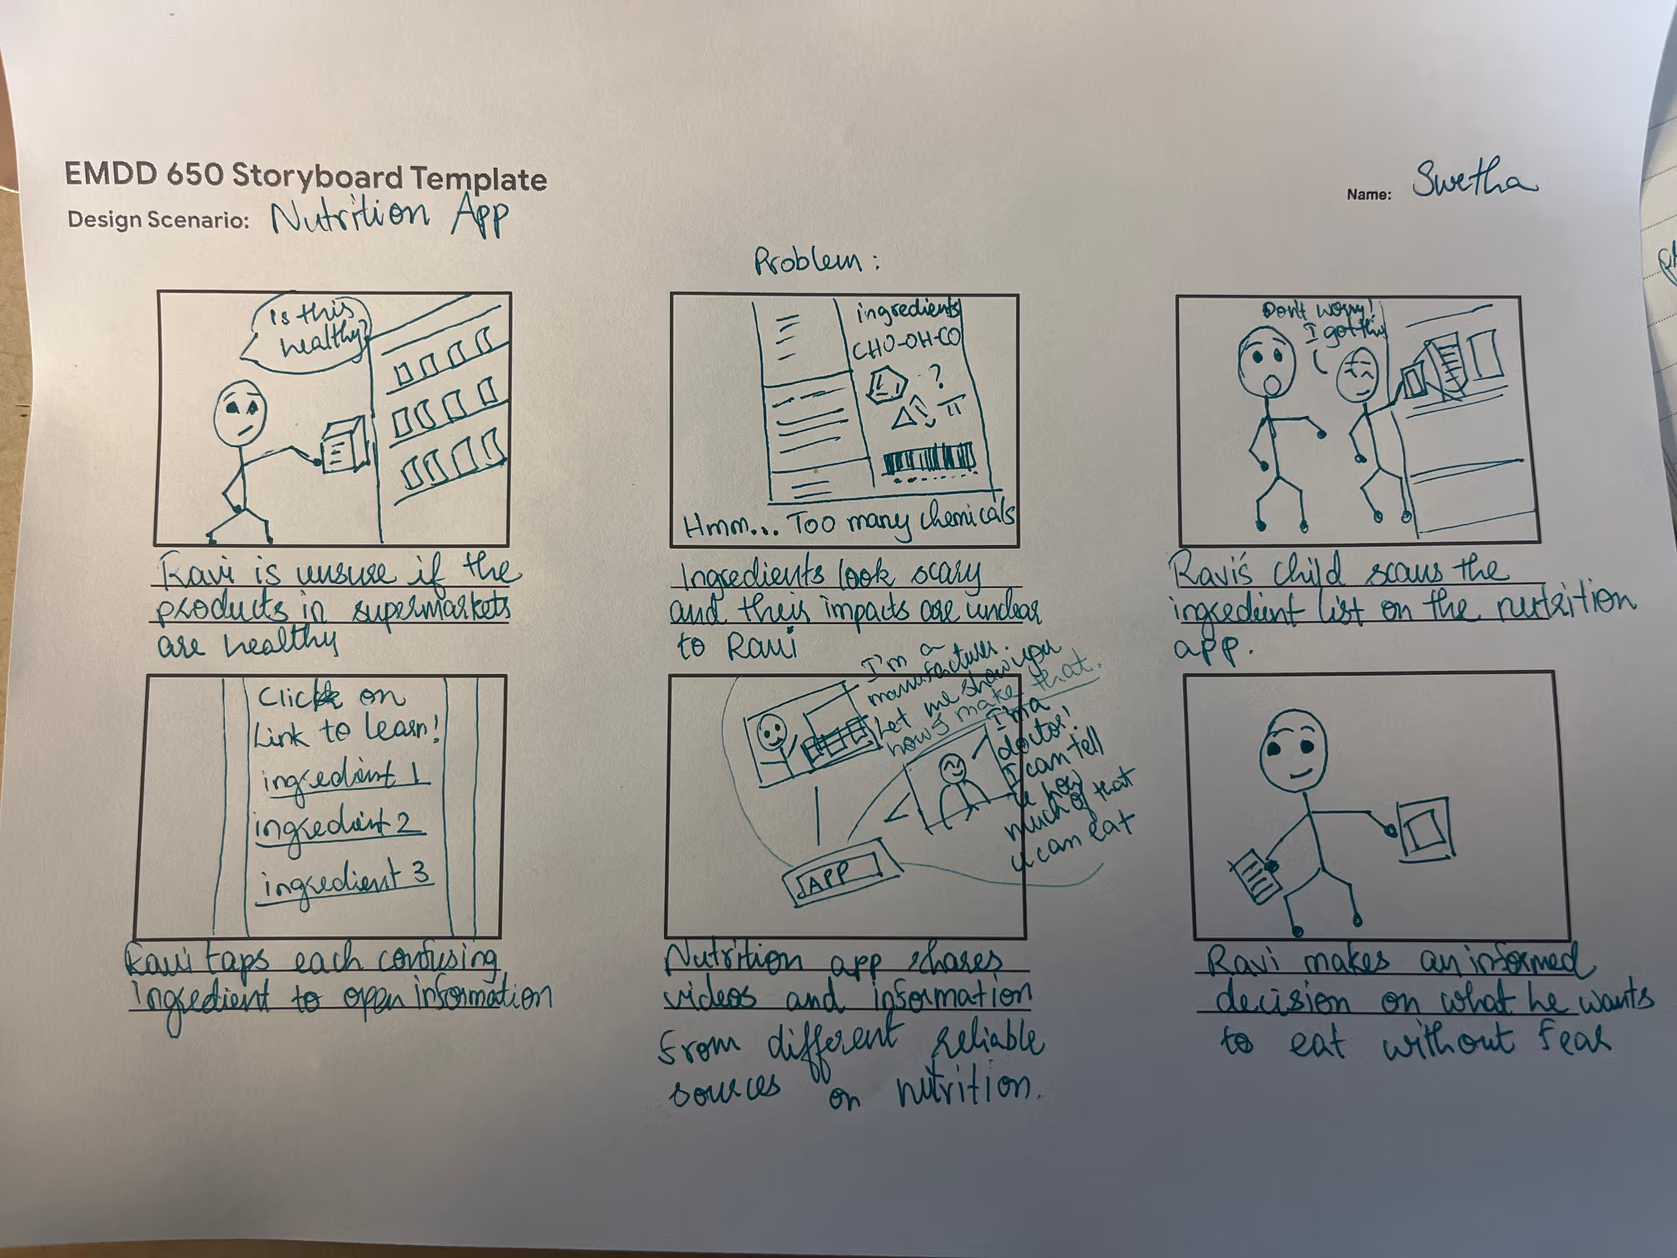 EMDD 650 Storyboard Template
Name: Swetha
Design Scenario: Nutrition App
Problem:
Is this
healthy?
Ravi is unsure if the
products in supermarkets
are healthy
ingredients
CHO-OH-CO
?
Hmm... Too many chemicals
Ingredients look scary
and their impacts are unclear
to Ravi
Don't worry!
I got this
Ravi's child scans the
ingredient list on the nutrition
app.
Click on
Link to learn!
ingredient 1
ingredient 2
ingredient 3
Ravi taps each confusing
ingredient to open information
I'm a
manufacturer.
Let me show you
how I make that.
I'm a
doctor!
I can tell
u how
much of that
u can eat
APP
Nutrition app shares
videos and information
from different reliable
sources on nutrition.
Ravi makes an informed
decision on what he wants
to eat without fear